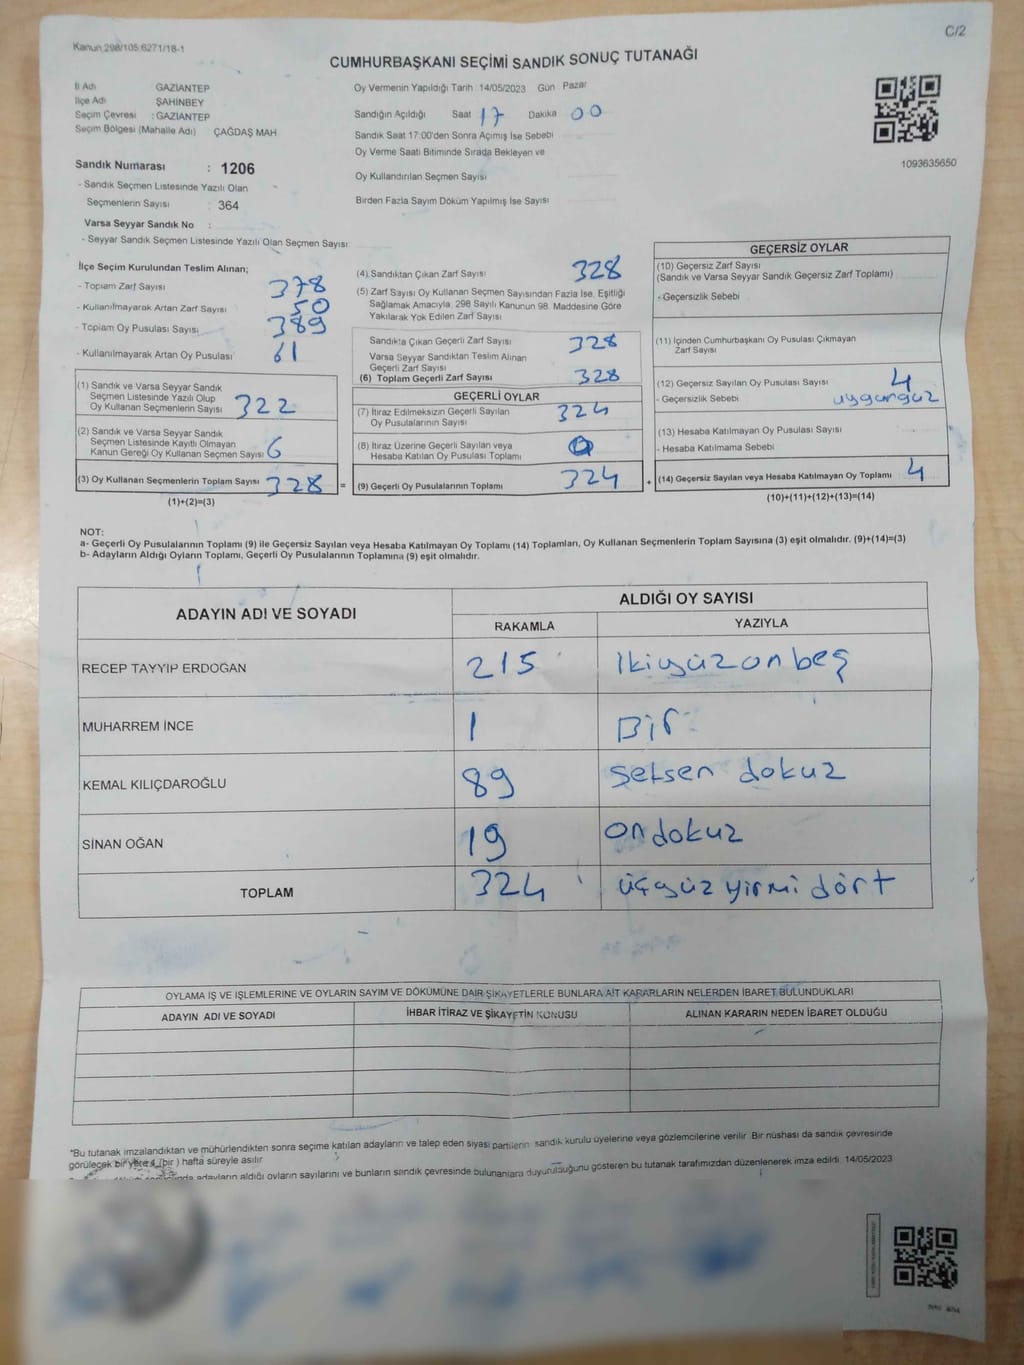 Kanun 298/105.6271/18-1
C/2
CUMHURBAŞKANI SEÇİMİ SANDIK SONUÇ TUTANAĞI
İl Adı GAZİANTEP
İlçe Adı ŞAHİNBEY
Seçim Çevresi : GAZİANTEP
Seçim Bölgesi (Mahalle Adı) ÇAĞDAŞ MAH
Sandık Numarası : 1206
- Sandık Seçmen Listesinde Yazılı Olan
Seçmenlerin Sayısı : 364
Varsa Seyyar Sandık No :
- Seyyar Sandık Seçmen Listesinde Yazılı Olan Seçmen Sayısı
Oy Vermenin Yapıldığı Tarih 14/05/2023 Gün Pazar
Sandığın Açıldığı Saat 17 Dakika 00
Sandık Saat 17:00'den Sonra Açımış İse Sebebi
Oy Verme Saati Bitiminde Sırada Bekleyen ve
Oy Kullandırılan Seçmen Sayısı
Birden Fazla Sayım Döküm Yapılmış İse Sayısı
1093635650
İlçe Seçim Kurulundan Teslim Alınan;
- Toplam Zarf Sayısı 378
- Kullanılmayarak Artan Zarf Sayısı 50
- Toplam Oy Pusulası Sayısı 389
- Kullanılmayarak Artan Oy Pusulası 61
(1) Sandık ve Varsa Seyyar Sandık
Seçmen Listesinde Yazılı Olup
Oy Kullanan Seçmenlerin Sayısı 322
(2) Sandık ve Varsa Seyyar Sandık
Seçmen Listesinde Kayıtlı Olmayan
Kanun Gereği Oy Kullanan Seçmen Sayısı 6
(3) Oy Kullanan Seçmenlerin Toplam Sayısı 328 =
(1)+(2)=(3)
(4) Sandıktan Çıkan Zarf Sayısı 328
(5) Zarf Sayısı Oy Kullanan Seçmen Sayısından Fazla İse, Eşitliği
Sağlamak Amacıyla, 298 Sayılı Kanunun 98. Maddesine Göre
Yakılarak Yok Edilen Zarf Sayısı
Sandıkta Çıkan Geçerli Zarf Sayısı 328
Varsa Seyyar Sandıktan Teslim Alınan
Geçerli Zarf Sayısı
(6) Toplam Geçerli Zarf Sayısı 328
GEÇERLİ OYLAR
(7) İtiraz Edilmeksizin Geçerli Sayılan
Oy Pusulalarının Sayısı 324
(8) İtiraz Üzerine Geçerli Sayılan veya
Hesaba Katılan Oy Pusulası Toplamı 0
(9) Geçerli Oy Pusulalarının Toplamı 324 +
GEÇERSİZ OYLAR
(10) Geçersiz Zarf Sayısı
(Sandık ve Varsa Seyyar Sandık Geçersiz Zarf Toplamı)
- Geçersizlik Sebebi
(11) İçinden Cumhurbaşkanı Oy Pusulası Çıkmayan
Zarf Sayısı
(12) Geçersiz Sayılan Oy Pusulası Sayısı 4
- Geçersizlik Sebebi uygunsuz
(13) Hesaba Katılmayan Oy Pusulası Sayısı
- Hesaba Katılmama Sebebi
(14) Geçersiz Sayılan veya Hesaba Katılmayan Oy Toplamı 4
(10)+(11)+(12)+(13)=(14)
NOT:
a- Geçerli Oy Pusulalarının Toplamı (9) ile Geçersiz Sayılan veya Hesaba Katılmayan Oy Toplamı (14) Toplamları, Oy Kullanan Seçmenlerin Toplam Sayısına (3) eşit olmalıdır. (9)+(14)=(3)
b- Adayların Aldığı Oyların Toplamı, Geçerli Oy Pusulalarının Toplamına (9) eşit olmalıdır.
ADAYIN ADI VE SOYADI ALDIĞI OY SAYISI
RAKAMLA YAZIYLA
RECEP TAYYİP ERDOĞAN 215 ikiyüzonbeş
MUHARREM İNCE 1 Bir
KEMAL KILIÇDAROĞLU 89 Seksen dokuz
SİNAN OĞAN 19 on dokuz
TOPLAM 324 üçyüz yirmi dört
OYLAMA İŞ VE İŞLEMLERİNE VE OYLARIN SAYIM VE DÖKÜMÜNE DAİR ŞİKAYETLERLE BUNLARA AİT KARARLARIN NELERDEN İBARET BULUNDUKLARI
ADAYIN ADI VE SOYADI İHBAR İTİRAZ VE ŞİKAYETİN KONUSU ALINAN KARARIN NEDEN İBARET OLDUĞU
"Bu tutanak imzalandıktan ve mühürlendikten sonra seçime katılan adayların ve talep eden siyasi partilerin sandık kurulu üyelerine veya gözlemcilerine verilir. Bir nüshası da sandık çevresinde
görülecek bir yere 1 (bir) hafta süreyle asılır
adayların aldığı oyların sayılarını ve bunların sandık çevresinde bulunanlara duyurulduğunu gösteren bu tutanak tarafımızdan düzenlenerek imza edildi. 14/05/2023